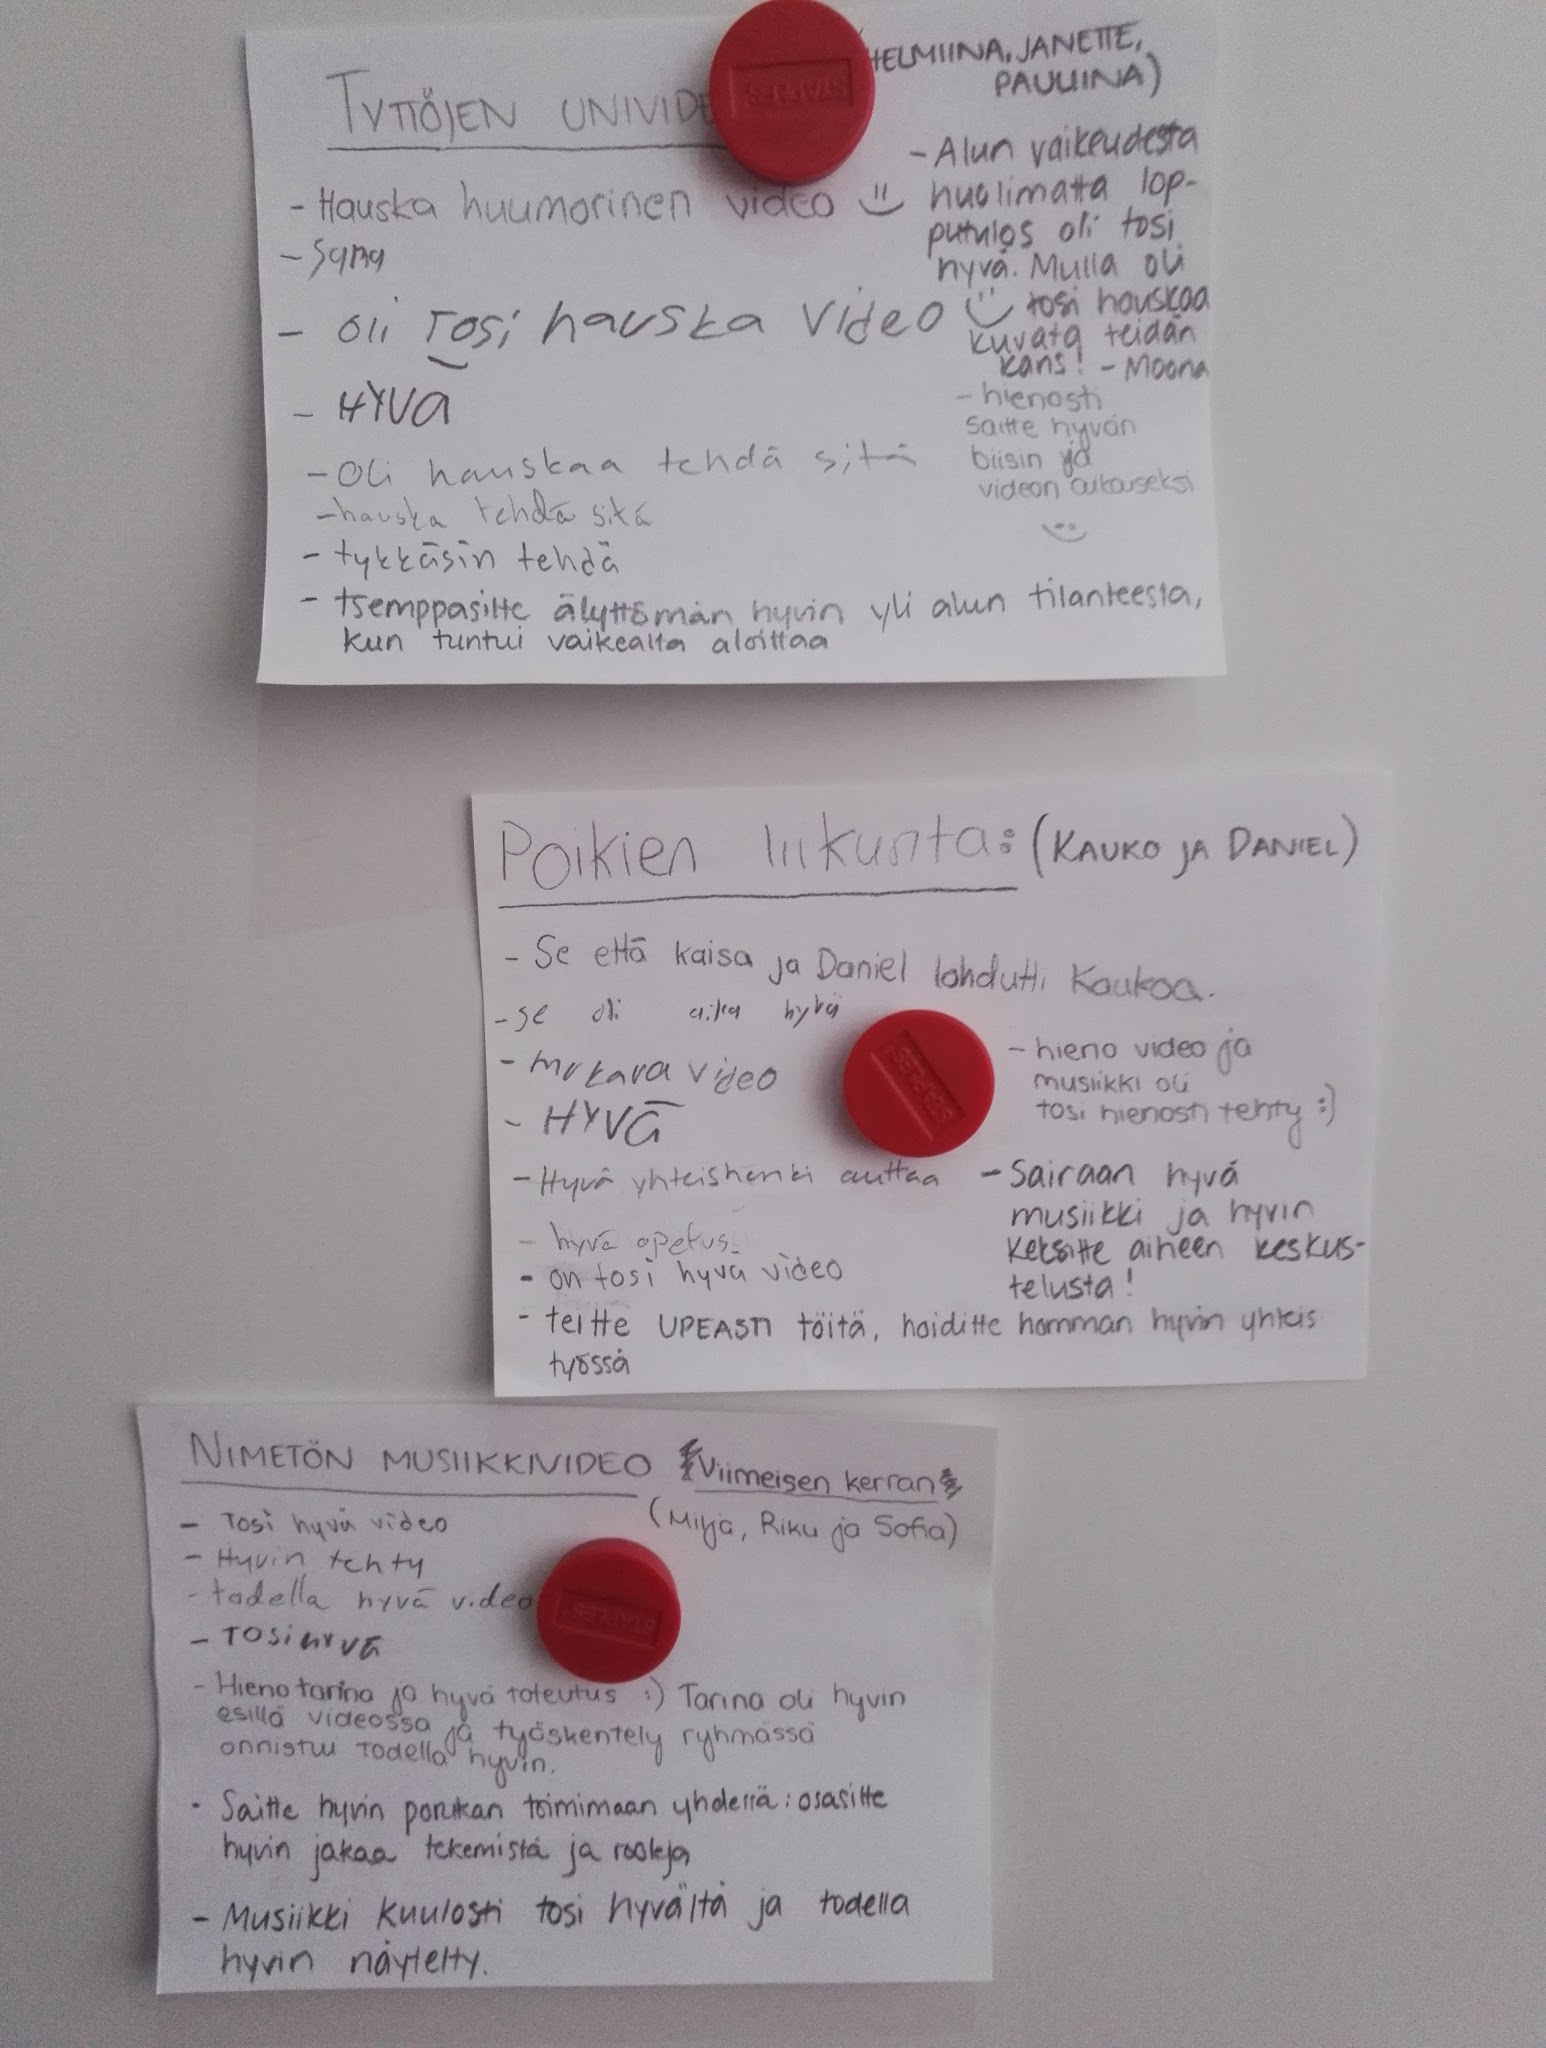 TYTTÖJEN UNIVIDE
(HELMIINA, JANETTE,
PAULIINA)
- Hauska huumorinen video
- Sama
- Oli Tosi hauska video
- HYVÄ
- Oli hauskaa tehdä sitä
- hauska tehdä sitä
- tykkäsin tehdä
- tsemppasitte älyttömän hyvin yli alun tilanteesta,
kun tuntui vaikealta aloittaa
- Alun vaikeudesta
huolimatta lop-
putulos oli tosi
hyvä. Mulla oli
tosi hauskaa
kuvata teidän
kans! - Moona
- hienosti
saitte hyvän
biisin ja
videon aikaiseksi
Poikien liikunta: (KAUKO JA DANIEL)
- Se että kaisa ja Daniel lohdutti Kaukoa.
- se oli aika hyvä
- mukava video
- HYVÄ
- Hyvä yhteishenki auttaa
- hyvä opetus.
- on tosi hyvä video
- teitte UPEASTI töitä, hoiditte homman hyvin yhteis
työssä
- hieno video ja
musiikki oli
tosi hienosti tehty :)
- Sairaan hyvä
musiikki ja hyvin
keksitte aiheen keskus-
telusta!
NIMETÖN MUSIIKKIVIDEO Viimeisen kerran
(Milja, Riku ja Sofia)
- Tosi hyvä video
- Hyvin tehty
- todella hyvä video
- TOSI HYVÄ
- Hieno tarina ja hyvä toteutus :) Tarina oli hyvin
esillä videossa ja työskentely ryhmässä
onnistui todella hyvin.
- Saitte hyvin porukan toimimaan yhdessä: osasitte
hyvin jakaa tekemistä ja rooleja
- Musiikki kuulosti tosi hyvältä ja todella
hyvin näytelty.
STAPLES
STAPLES
STAPLES